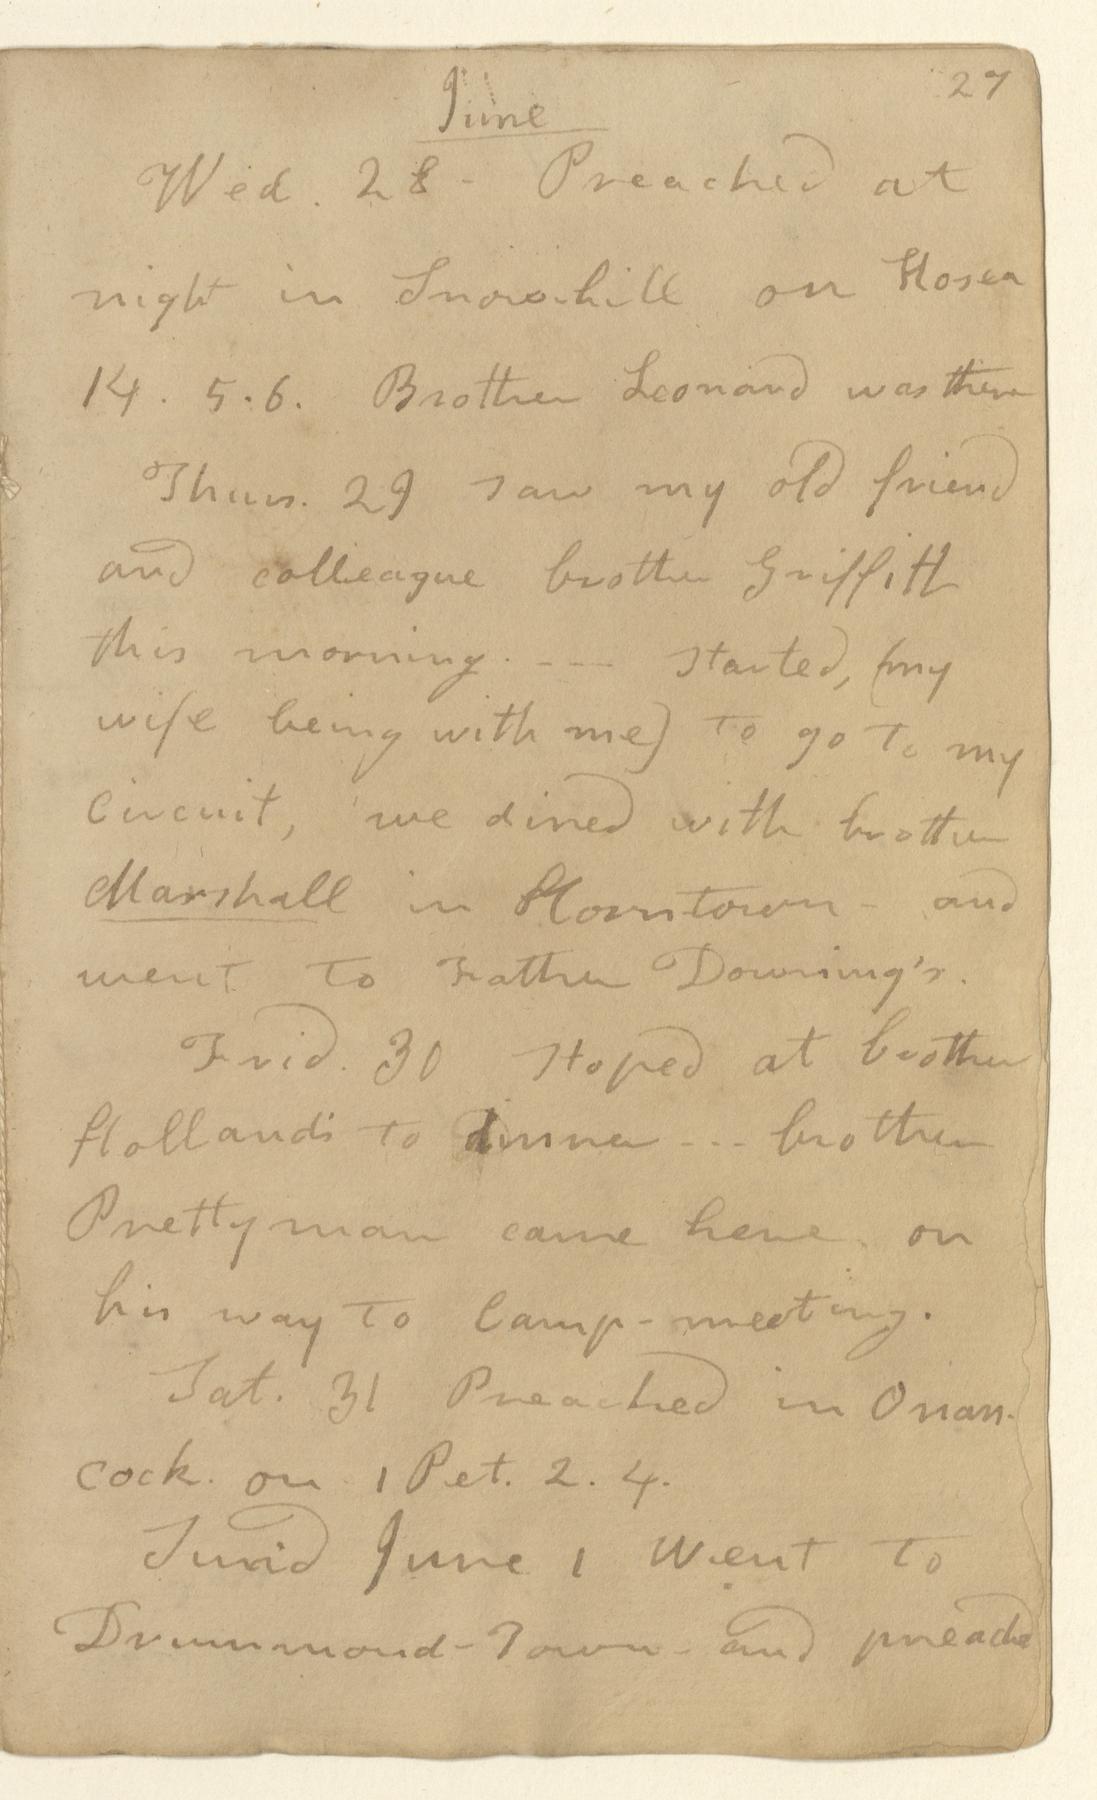 27
June
Wed. 28 - Preached at
night in Snowhill on Hosea
14. 5.6. Brother Leonard was there
Thurs. 29 saw my old friend
and colleague brother Griffith
this morning. --- started, (my
wife being with me) to go to my
Circuit, we dined with brother
Marshall in Horntown - and
went to Father Downing's.
Frid. 30 stoped at brother
Hollands to dinner --- brother
Prettyman came here on
his way to Camp-meeting.
Sat. 31 Preached in Onan-
cock. on 1 Pet. 2. 4.
June 1 Went to
Drummond-Town - and preache